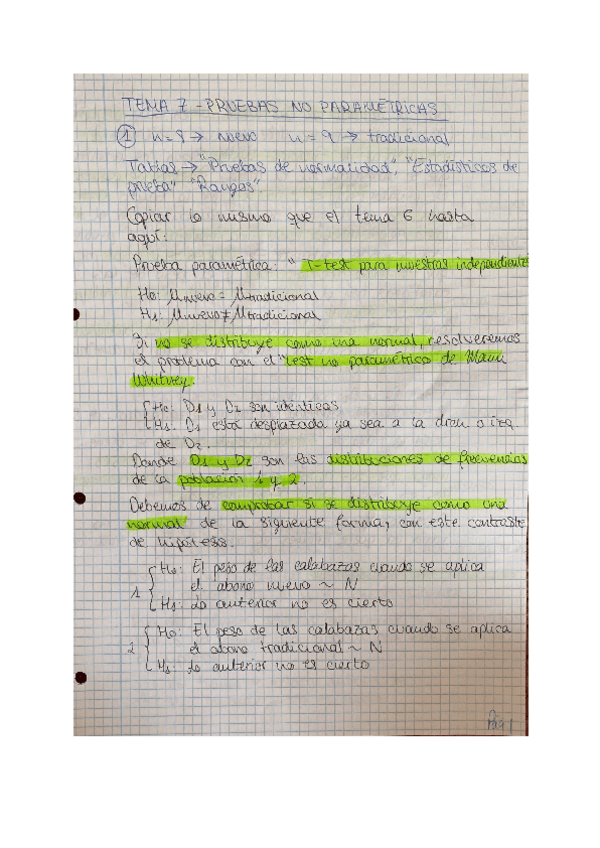 TEMA 7 - PRUEBAS NO PARAMÉTRICAS
① n=9 → nuevo n=9 → tradicional
Tablas → "Pruebas de normalidad", "Estadísticos de
prueba" "Rangos"
Copiar lo mismo que el tema 6 hasta
aquí:
Prueba paramétrica: " T-test para muestras independiente
H₀: μnuevo = μtradicional
H₁: μnuevo ≠ μtradicional
Si no se distribuye como una normal, resolveremos
el problema con el "test no paramétrico de Mann
Whitney.
H₀: D₁ y D₂ son idénticas
H₁: D₁ está desplazada ya sea a la drch o izq
de D₂.
Donde D₁ y D₂ son las distribuciones de frecuencias
de la población 1 y 2.
Debemos de comprobar si se distribuye como una
normal de la siguiente forma, con este contraste
de hipótesis.
H₀: El peso de las calabazas cuando se aplica
el abono nuevo ~ N
1 H₁: Lo anterior no es cierto
H₀: El peso de las calabazas cuando se aplica
2 el abono tradicional ~ N
H₁: Lo anterior no es cierto
Pág 1